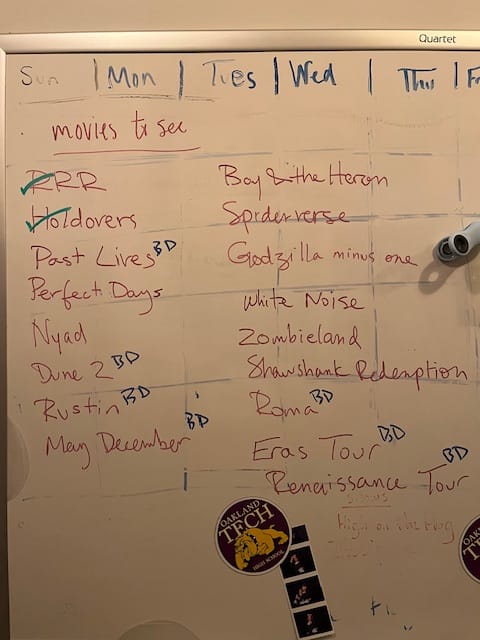 Quartet
Sun | Mon | Tues | Wed | Thu | F
movies to see
RRR
Holdovers
Past Lives BD
Perfect Days
Nyad
Dune 2 BD
Rustin BD
May December BD
Boy & the Heron
Spiderverse
Godzilla minus one
White Noise
Zombieland
Shawshank Redemption
Roma BD
Eras Tour BD
Renaissance Tour BD
shows
High on the Hog
OAKLAND
TECH
HIGH SCHOOL
OAKL
TE